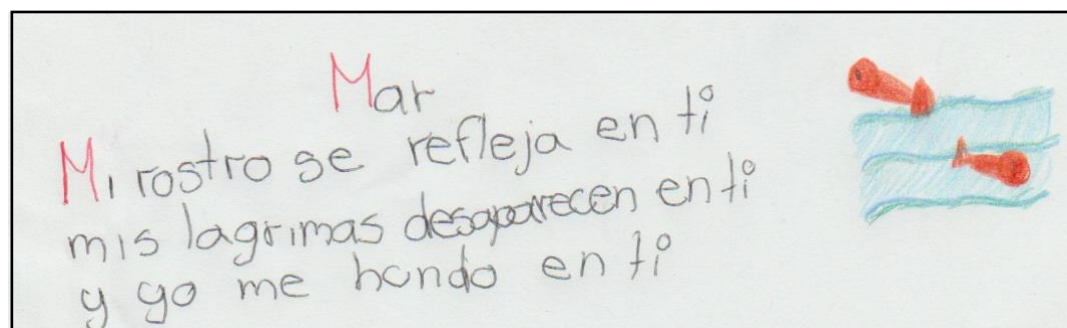 Mar
Mi rostro se refleja en ti
mis lagrimas desaparecen en ti
y yo me hundo en ti